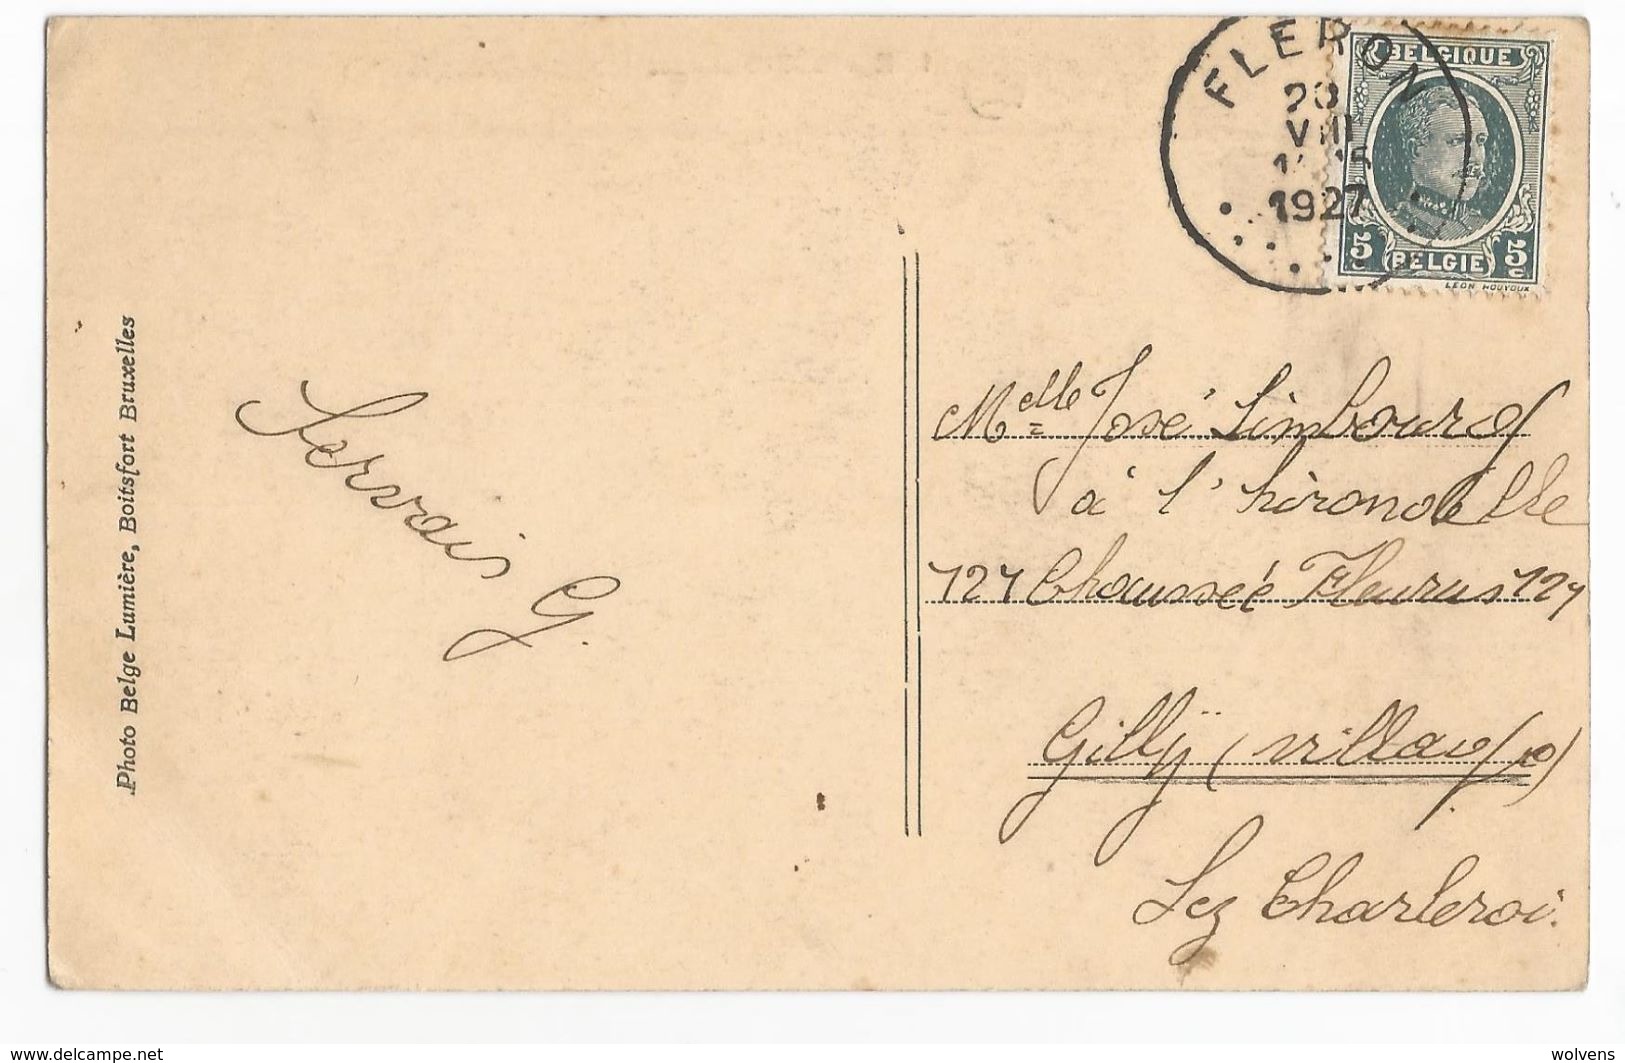 FLERON
VIII
1927
BELGIQUE
5 5
c c
BELGIE
LEON HOUYOUX
Photo Belge Lumière, Boitsfort Bruxelles
Servais G.
Melle José Limbourg
à l'hirondelle
127 Chaussée Fleurus 127
Gilly (village)
Lez Charleroi.
www.delcampe.net
wolvens